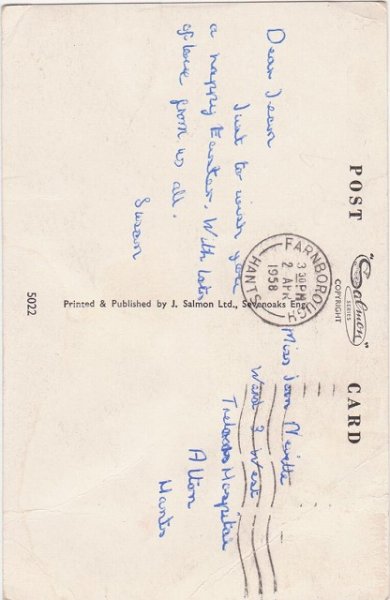 POST CARD
"Salmon"
SERIES
COPYRIGHT
Dear Jean
Just to wish you
a happy Easter. With lots
of love from us all.
Susan
FARNBOROUGH
3 30PM
2 APR
1958
HANTS
Miss Jean
Ward 3 West
Treloars Hospital
Alton
Hants
Printed & Published by J. Salmon Ltd., Sevenoaks Eng.
5022